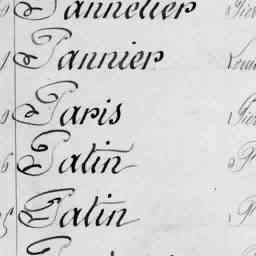 Pannetier
Pannier
Paris
Patin
Patin